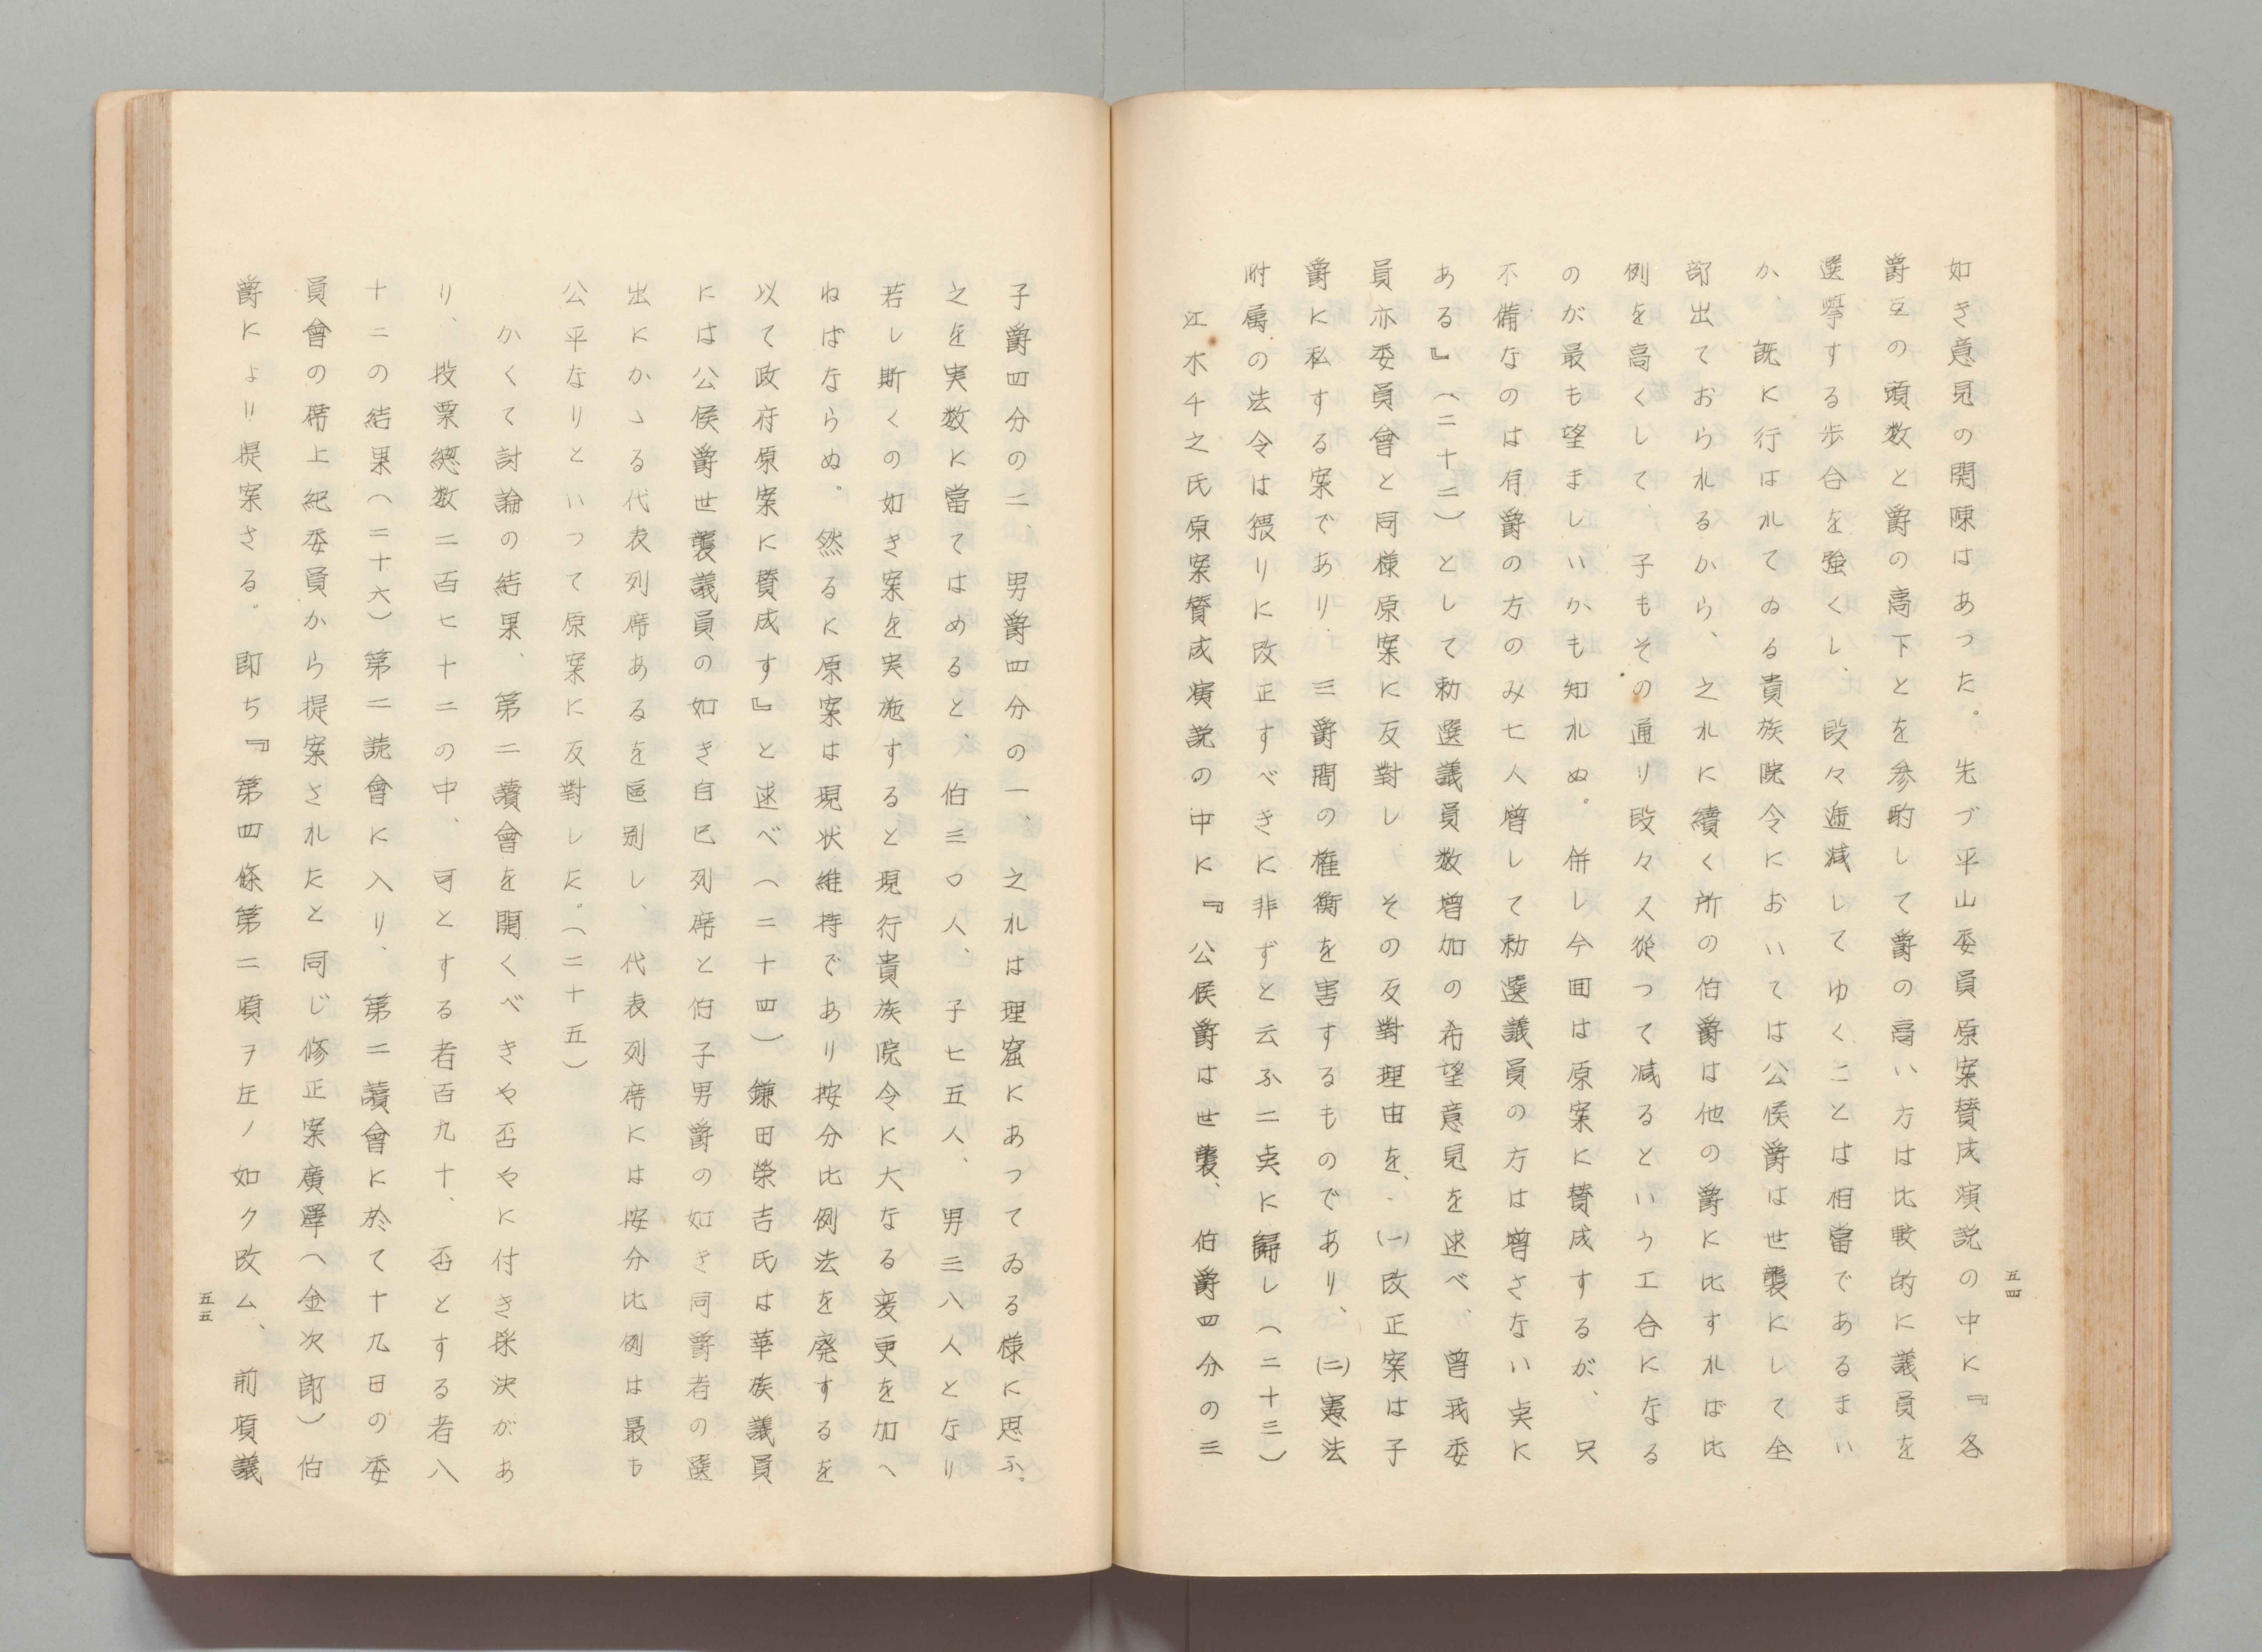 五四
如き意見の開陳はあつた。先づ平山委員原案賛成演説の中に『各
爵互の頭数と爵の高下とを参酌して爵の高い方は比較的に議員を
選擧する歩合を強くし、段々逓減してゆくことは相當であるまい
か、既に行はれてゐる貴族院令においては公侯爵は世襲にして全
部出ておられるから、之れに續く所の伯爵は他の爵に比すれば比
例を高くして、子もその通り段々又從つて減るという工合になる
のが最も望ましいかも知れぬ。併し今囬は原案に賛成するが、只
不備なのは有爵の方のみ七人増して勅選議員の方は増さない点に
ある』（二十二）として勅選議員数増加の希望意見を述べ、曽我委
員亦委員會と同様原案に反對し、その反對理由を、㈠改正案は子
爵に私する案であり、三爵間の権衡を害するものであり、㈡憲法
附属の法令は猥りに改正すべきに非ずと云ふ二点に歸し（二十三）
江木千之氏原案賛成演説の中に『公侯爵は世襲、伯爵四分の三
子爵四分の二、男爵四分の一、之れは理窟にあつてゐる様に思ふ。
之を実数に當てはめると、伯三〇人、子七五人、男三八人となり
若し斯くの如き案を実施すると現行貴族院令に大なる変更を加へ
ねばならぬ。然るに原案は現状維持であり按分比例法を廃するを
以て政府原案に賛成す』と述べ（二十四）鎌田榮吉氏は華族議員
には公侯爵世襲議員の如き自己列席と伯子男爵の如き同爵者の選
出にかゝる代表列席あるを區別し、代表列席には按分比例は最も
公平なりといつて原案に反對した。（二十五）
かくて討論の結果、第二讀會を開くべきや否やに付き採決があ
り、投票總数二百七十二の中、可とする者百九十、否とする者八
十二の結果（二十六）第二読會に入り、第二讀會に於て十九日の委
員會の席上紀委員から提案されたと同じ修正案廣澤（金次郎）伯
爵により提案さる。即ち『第四條第二項ヲ左ノ如ク改ム、前項議
五五